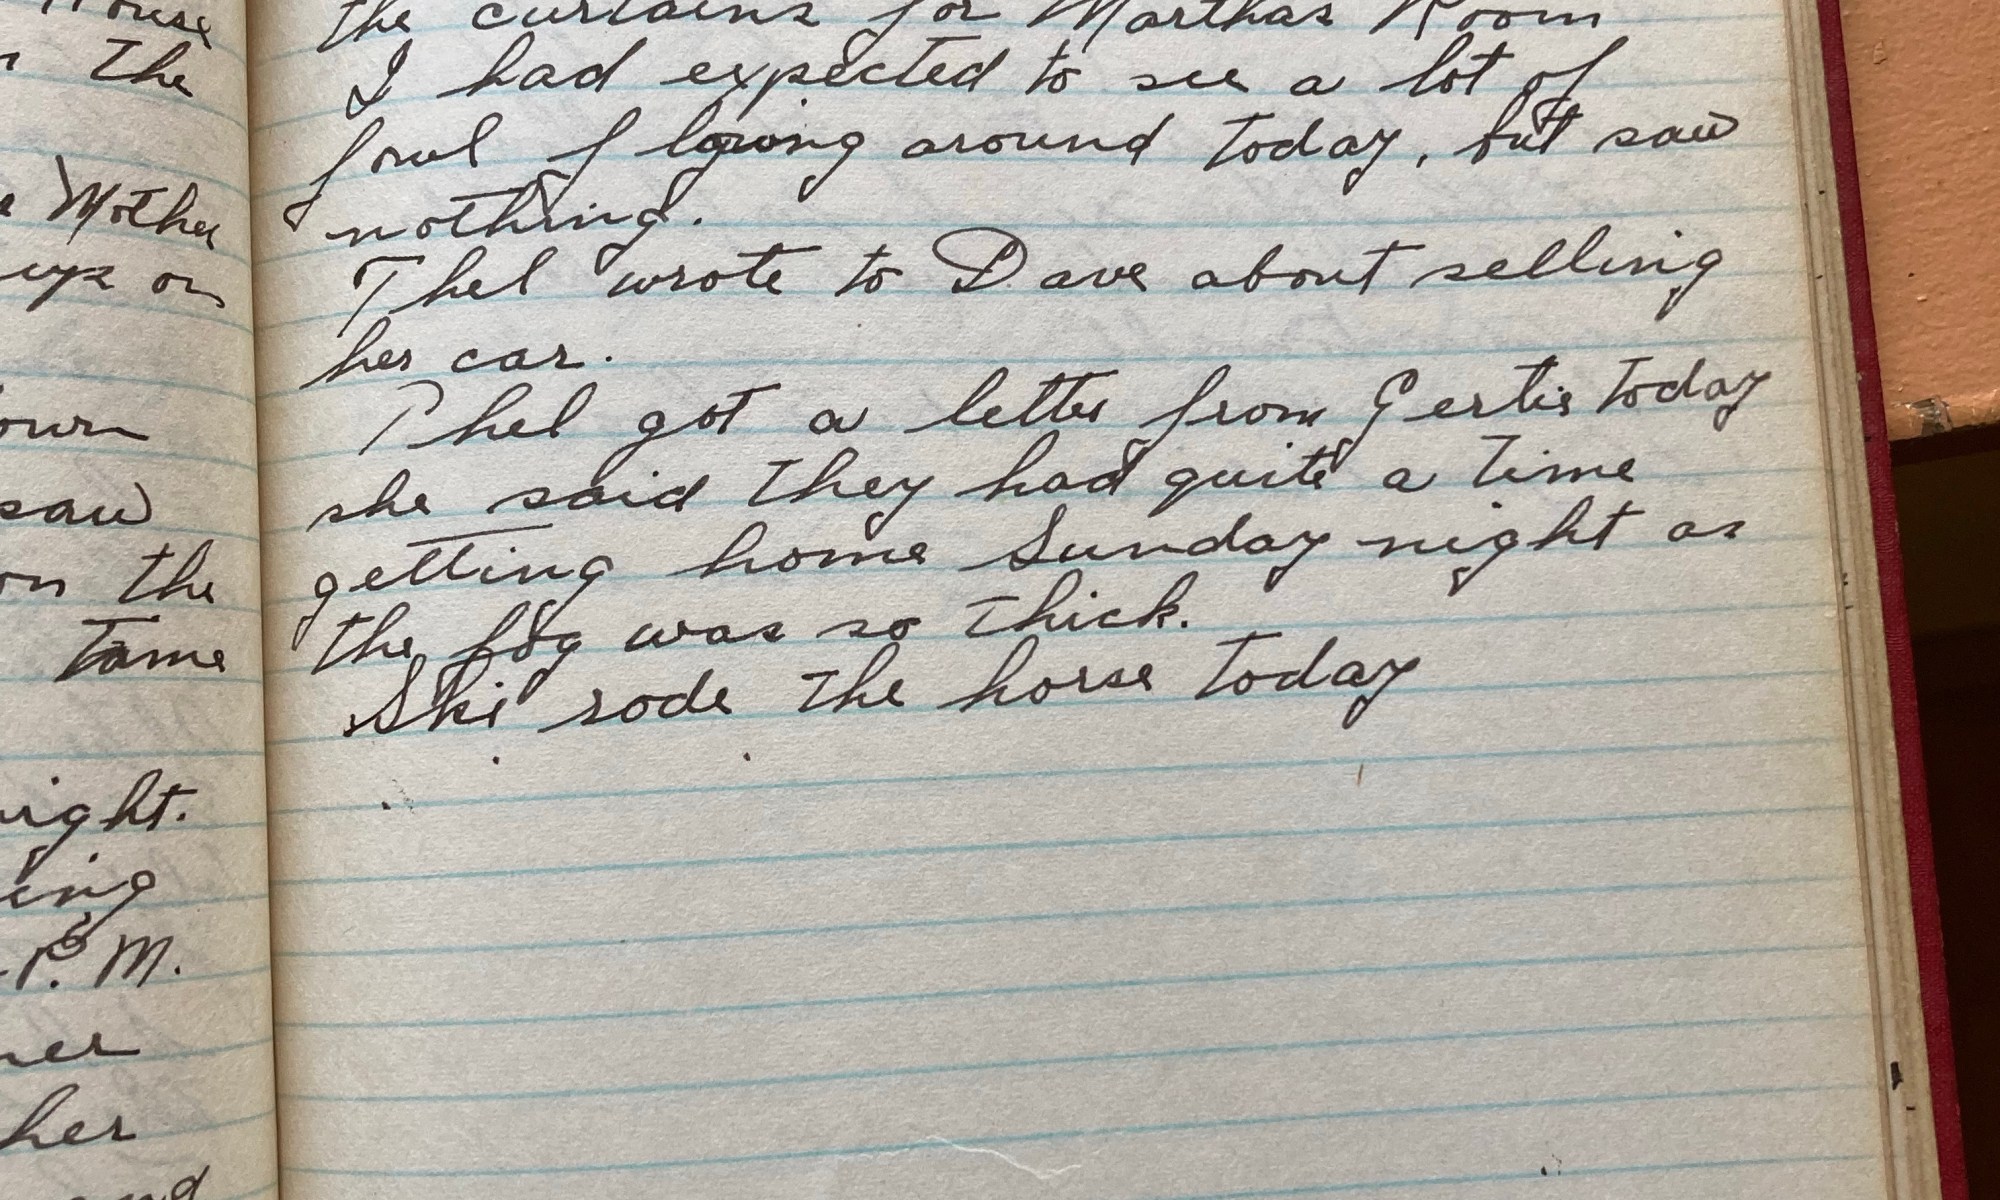 House
the
Mother
ups on
own
saw
on the
Tame
night.
ing
P. M.
her
the curtains for Marthas Room
I had expected to see a lot of
fowl flowing around today, but saw
nothing.
Thel wrote to Dave about selling
her car.
Thel got a letter from Gertie today
she said they had quite a time
getting home Sunday night as
the fog was so thick.
Ski rode the horse today